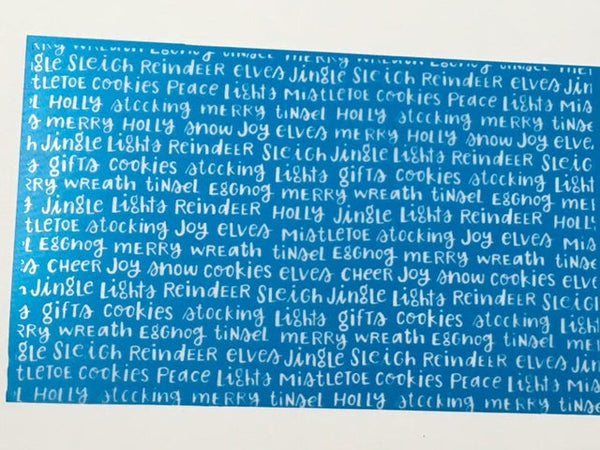 RRY WREATH EGGNOG tinsel MERRY WREATH EGGNOG tinsel MER
gle Sleigh Reindeer elves Jingle Sleigh Reindeer elves Jin
tletoe Cookies Peace Lights Mistletoe Cookies Peace Lights Mis
l Holly stocking merry tinsel Holly stocking merry tinse
s merry Holly snow Joy elves merry Holly snow Joy elve
h Jingle Lights Reindeer Sleigh Jingle Lights Reindeer Sleig
s gifts cookies stocking Lights gifts cookies stocking Light
rry wreath tinsel Eggnog merry wreath tinsel Eggnog mer
s Jingle Lights Reindeer Holly Jingle Lights Reindeer Holl
tletoe stocking Joy elves Mistletoe stocking Joy elves Mis
l Eggnog merry wreath tinsel Eggnog merry wreath tinse
s Cheer Joy snow cookies elves Cheer Joy snow cookies elve
n Jingle Lights Reindeer Sleigh Jingle Lights Reindeer Sleig
s gifts cookies stocking Lights gifts cookies stocking Light
rry wreath Eggnog tinsel merry wreath Eggnog tinsel mer
gle Sleigh Reindeer elves Jingle Sleigh Reindeer elves Jin
tletoe Cookies Peace Lights Mistletoe Cookies Peace Lights Mis
l Holly stocking merry tinsel Holly stocking merry tinse